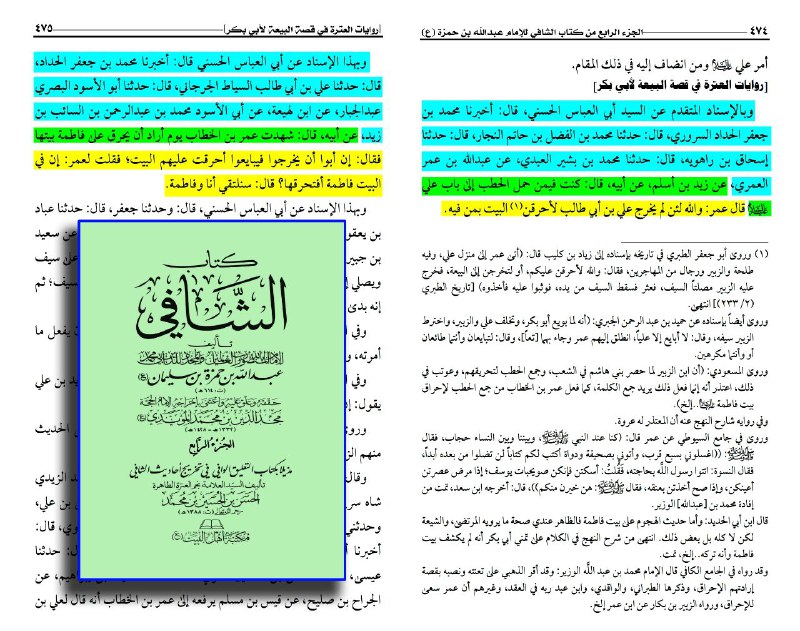 ٤٧٤ الجزء الرابع من كتاب الشافي للإمام عبدالله بن حمزة (ع)
أمر علي ومن انضاف إليه في ذلك المقام.
[روايات العترة في قصة البيعة لأبي بكر]
وبالإسناد المتقدم عن السيد أبي العباس الحسني، قال: أخبرنا محمد بن
جعفر الحداد السروري، قال: حدثنا محمد بن الفضل بن حاتم النجار، قال: حدثنا
إسحاق بن راهويه، قال: حدثنا محمد بن بشير العبدي، عن عبدالله بن عمر
العمري، عن زيد بن أسلم، عن أبيه، قال: كنت فيمن حمل الحطب إلى باب علي
قال عمر: والله لئن لم يخرج علي بن أبي طالب لأحرقن(١) البيت بمن فيه.
(١) وروى أبو جعفر الطبري في تاريخه بإسناده إلى زياد بن كليب قال: (أتى عمر إلى منزل علي، وفيه
طلحة والزبير ورجال من المهاجرين، فقال: والله لأحرقن عليكم، أو لتخرجن إلى البيعة، فخرج
عليه الزبير مصلتاً السيف، فعثر فسقط السيف من يده، فوثبوا عليه فأخذوه) [تاريخ الطبري
(٢/ ٢٣٣)] انتهى.
وروى أيضاً بإسناده عن حميد بن عبد الرحمن الحميري: (أنه لما بويع أبو بكر، وتخلف علي والزبير، واخترط
الزبير سيفه، وقال: لا أبايع إلا علياً، انطلق إليهم عمر وجاء بهما [تعباً]، وقال: لتبايعان وأنتما طائعان
أو وأنتما مكرهين.
وروى المسعودي: (أن ابن الزبير لما حصر بني هاشم في الشعب، وجمع الحطب لتحريقهم، وعوتب في
ذلك، اعتذر أنه إنما فعل ذلك يريد جمع الكلمة، كما فعل عمر بن الخطاب من جمع الحطب لإحراق
بيت فاطمة ..إلخ).
وفي رواية شارح النهج عنه أن المعتذر له عروة.
وروى في جامع السيوطي عن عمر قال: (كنا عند النبي ، وبيننا وبين النساء حجاب، فقال
: ((اغسلوني بسبع قرب، وأتوني بصحيفة ودواة أكتب لكم كتاباً لن تضلوا من بعده أبداً،
فقال النسوة: ائتوا رسول الله بحاجته، فقلت: أسكتن فإنكن صويحبات يوسف؛ إذا مرض عصرتن
أعينكن، وإذا صح أخذتن بعنقه، فقال : هن خيرن منكم))، قال: أخرجه ابن سعد، تمت من
إفادة محمد بن [عبدالله] الوزير.
قال ابن أبي الحديد: وأما حديث الهجوم على بيت فاطمة فالظاهر عندي صحة ما يرويه المرتضى، والشيعة
لكن لا كله بل بعض ذلك. انتهى من شرح النهج في الكلام على تمني أبي بكر أنه لم يكشف بيت
فاطمة وأنه تركه..إلخ، تمت.
وقد رواه في الجامع الكافي قال الإمام محمد بن عبد الله الوزير: وقد أقر الذهبي على تعنته ونصبه بقصة
إرادتهم الإحراق، وذكرها الطبراني، والواقدي، وابن عبد ربه في العقد، وغيرهم أن عمر سعى
للإحراق، ورواه الزبير بن بكار عن ابن عمر إلخ.
[روايات العترة في قصة البيعة لأبي بكر] ٤٧٥
وبهذا الإسناد عن أبي العباس الحسني قال: أخبرنا محمد بن جعفر الحداد،
قال: حدثنا علي بن أبي طالب السياط الجرجاني، قال: حدثنا أبو الأسود البصري
عبدالجبار، عن ابن لهيعة، عن أبي الأسود محمد بن عبدالرحمن بن السائب بن
زيد، عن أبيه، قال: شهدت عمر بن الخطاب يوم أراد أن يحرق على فاطمة بيتها
فقال: إن أبوا أن يخرجوا فيبايعوا أحرقت عليهم البيت؛ فقلت لعمر: إن في
البيت فاطمة أفتحرقها؟ قال: سنلتقي أنا وفاطمة.
وبهذا الإسناد عن أبي العباس الحسني، قال: وحدثني جعفر، قال: حدثنا عباد
بن يعقو
عن سعيد
بن جبير
على سيف
ويصلي
سيف؛ ثم
إنه بدئ
وفي
ن يفعل ما
أمرته،
وفي
د بن علي
يقول: إ
وروى
الحديث
منهم الز
وقال
الزيدي
شاه سر
بن علي،
وحدثني
قال:
أخبرنا
حدثنا
عيسى،
يم، عن
الجراح بن صليح، عن قيس بن مسلم يرفعه إلى عمر بن الخطاب أنه قال لعلي بن
كتاب
الشافي
تأليف
عبدالله بن حمزة بن سليمان (ع)
مجدالدين بن محمد المؤيدي (ع)
١٣٣٢هـ - ١٤٢٨هـ
الجزء الرابع
مذيلا بكتاب التعليق الوافي في تخريج أحاديث الشافي
تأليف السيد العلامة نجم العترة الطاهرة
الحسن بن الحسين بن محمد
مكتبة أهل البيت (ع)